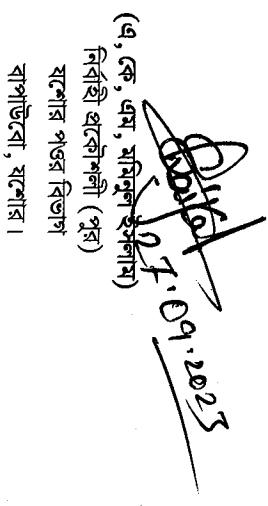 27.09.2023
(এ, কে, এম, মমিনুল ইসলাম)
নির্বাহী প্রকৌশলী (পুর)
যশোর পওর বিভাগ
বাপাউবো, যশোর।